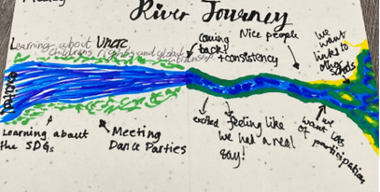 River Journey
Learning about UNCRC
Children's rights and global citizenship
coming
back!
+consistency
Nice people
we
want
links to
other
schools
Learning about
the SDGs
Meeting
Dance Parties
excited
feeling like
we had a real
say!
we
want lots
of
participation